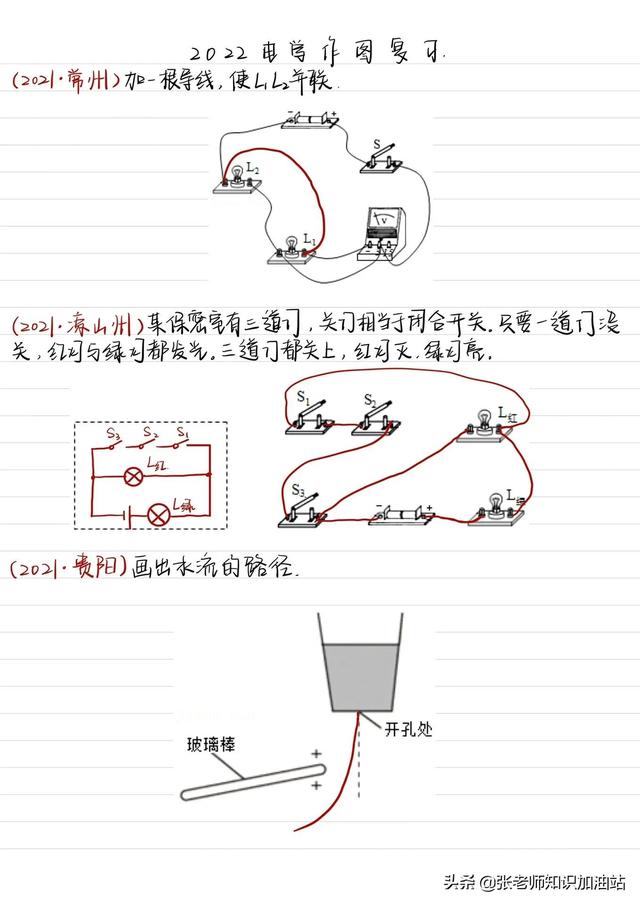 2022电学作图复习.
(2021·常州)加一根导线,使L₁L₂并联.
- +
S
L₂
V
L₁
(2021·凉山州)某保密室有三道门,关门相当于闭合开关。只要一道门没
关,红灯与绿灯都发光。三道门都关上,红灯灭,绿灯亮.
S₃ S₂ S₁
L红
L绿
S₁ S₂
L红
S₃
- +
(2021·贵阳)画出水流的路径.
开孔处
玻璃棒
+
+
头条 @张老师知识加油站